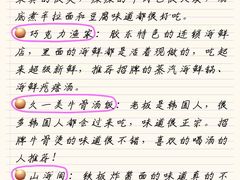 底煮半拉面和豆腐味道都很好吃。
巧克力渔菜：胶东特色的连锁海鲜店，里面的海鲜都是活着现做的，吃起来超级新鲜，推荐招牌的蒸汽海鲜锅、海鲜疙瘩汤。
久一美牛骨汤饭：老板是韩国人，很多韩国人都会过来吃，味道很正宗。招牌牛骨煲的味道很不错，喜欢的喝汤的人推荐！
山海间：铁板炸酱面的味道真的不